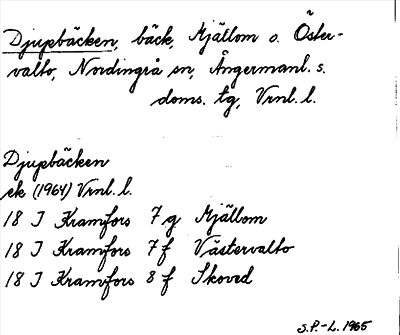 Djupbäcken, bäck, Mjällom o. Öster-
valto, Nordingrå sn, Ångermanl. s.
doms. tg, Vrnl. l.
Djupbäcken
ek (1964) Vrnl. l.
18 I Kramfors 7 g Mjällom
18 I Kramfors 7 f Västervalto
18 I Kramfors 8 f Skoved
S.P.-L. 1965